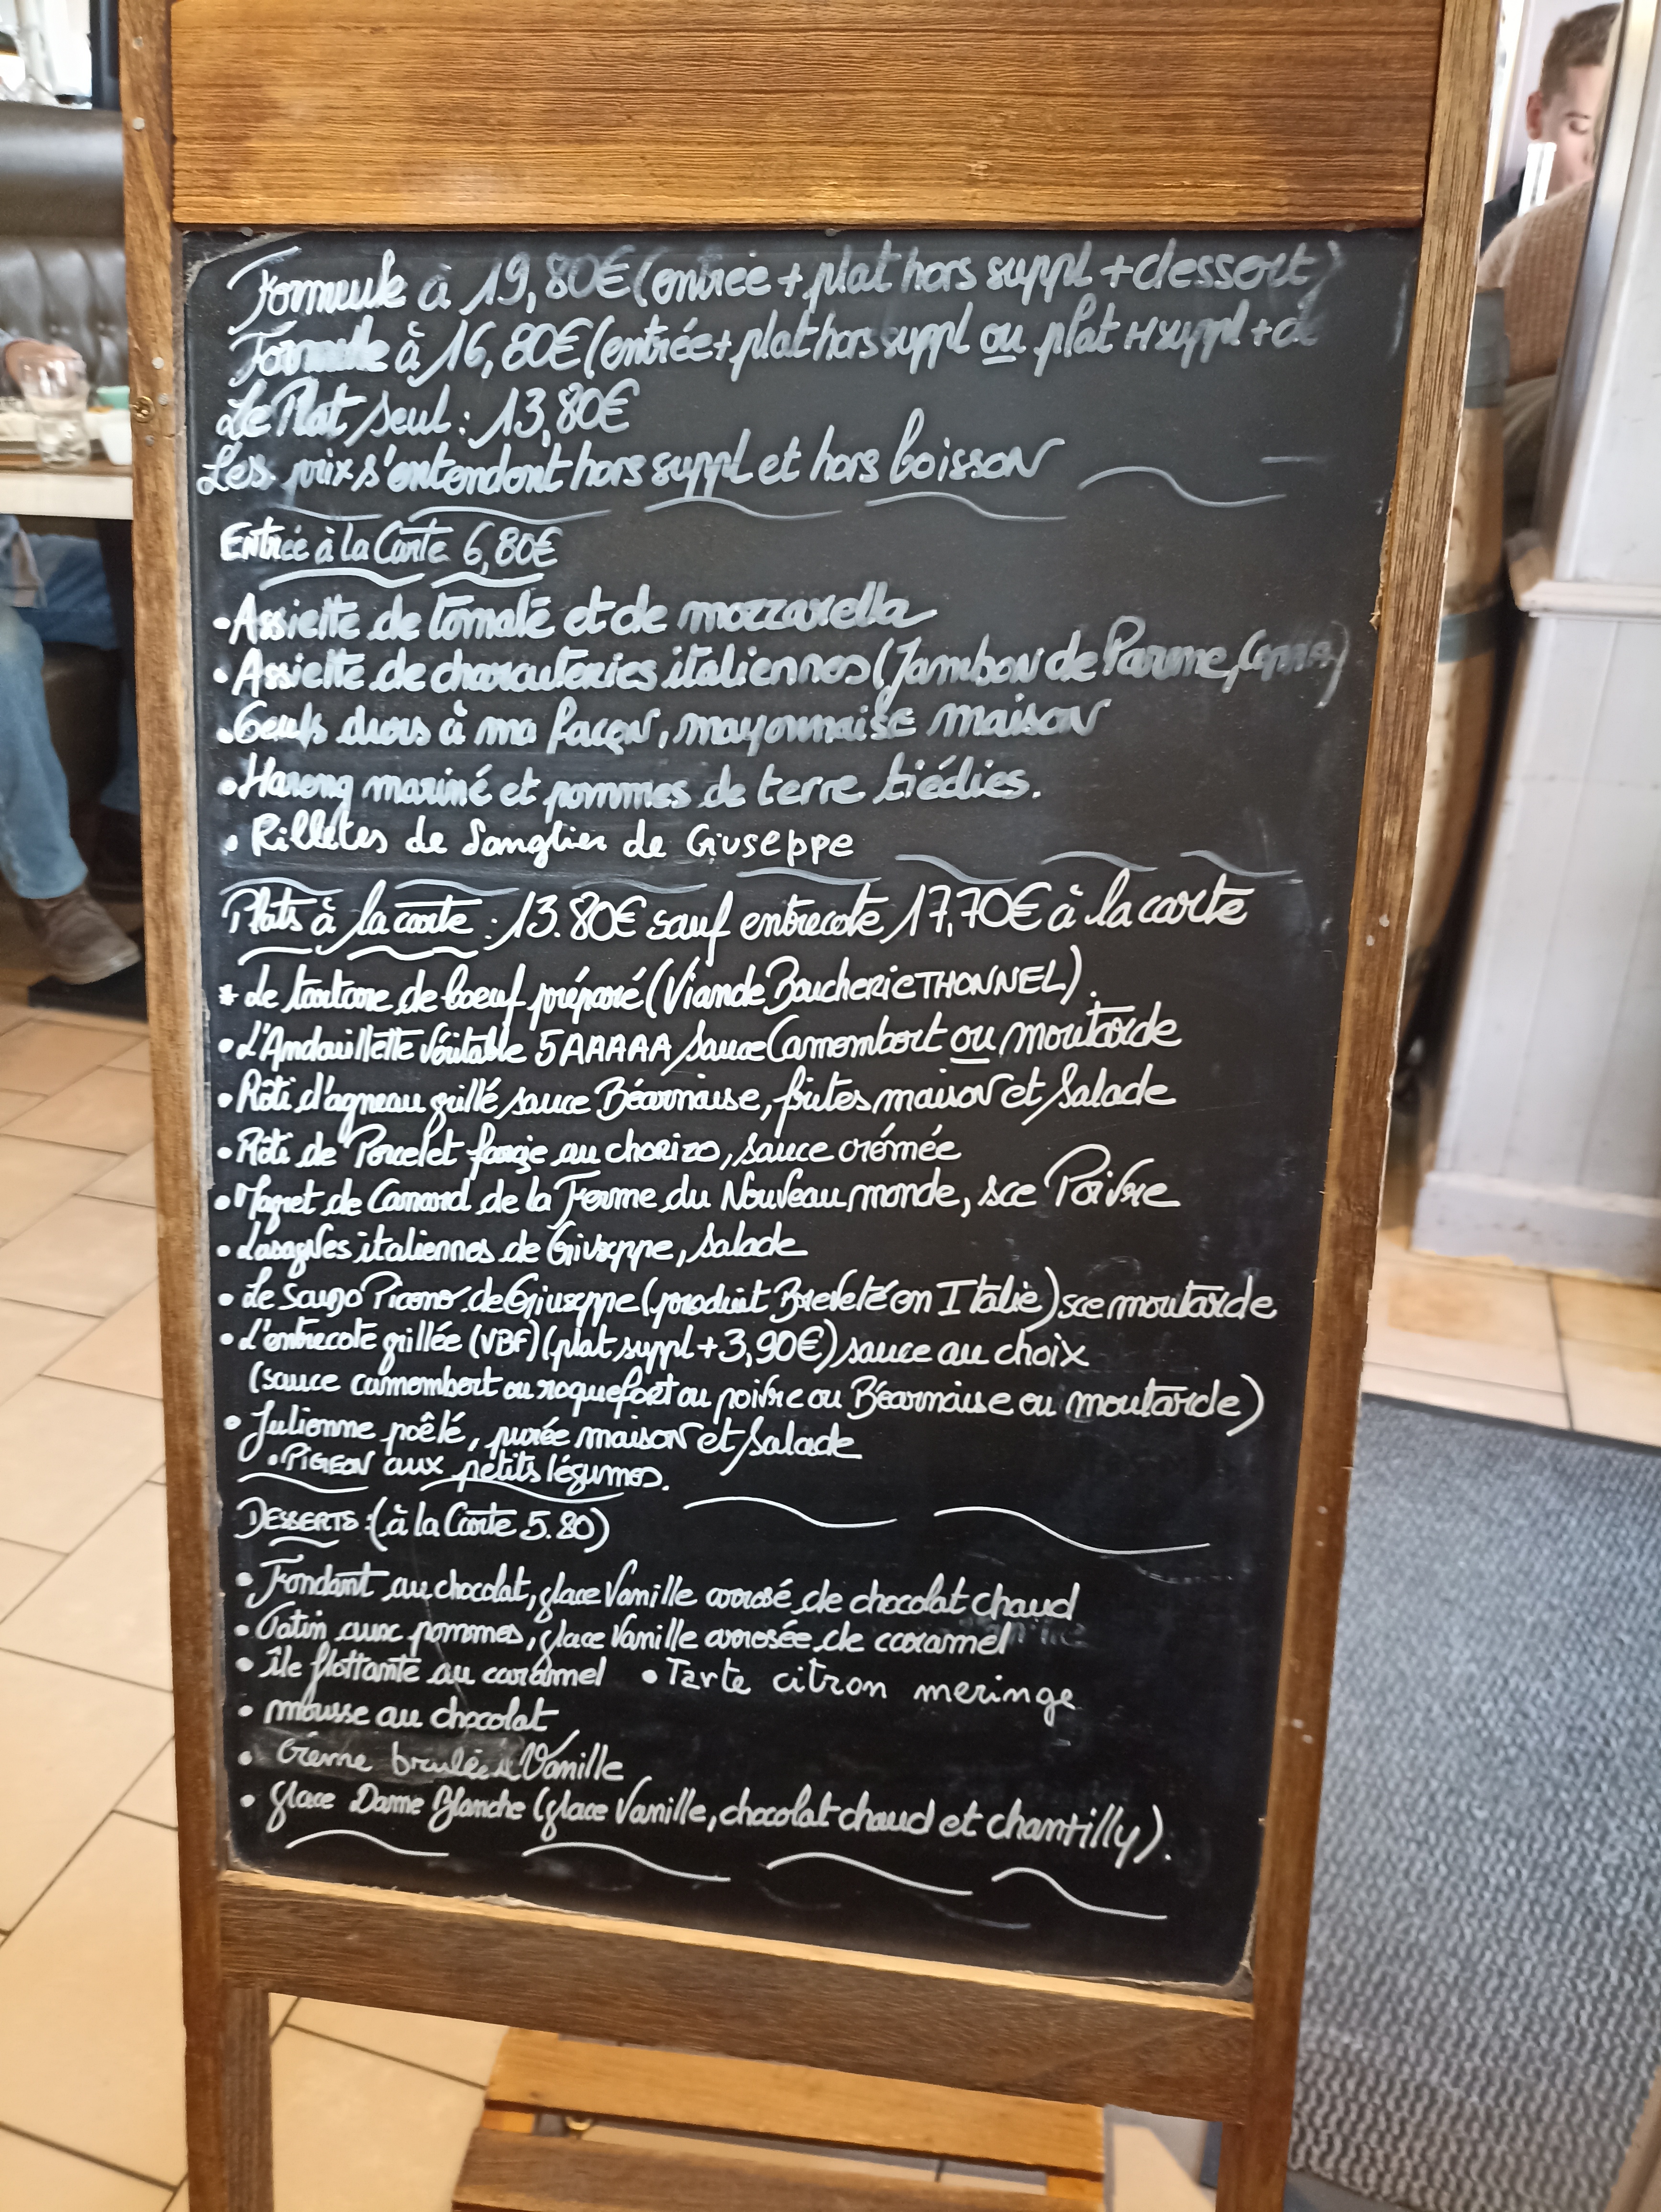 Formule à 19,80€ (entrée + plat hors suppl + dessert)
Formule à 16,80€ (entrée + plat hors suppl ou plat H suppl + de
Le Plat seul : 13,80€
Les prix s'entendent hors suppl et hors boisson
Entrée à la Carte 6,80€
• Assiette de tomate et de mozzarella
• Assiette de charcuteries italiennes (Jambon de Parme, Coppa)
• Oeufs durs à ma façon, mayonnaise maison
• Hareng mariné et pommes de terre tiédies.
• Rilletes de Sanglier de Giuseppe
Plats à la carte : 13.80€ sauf entrecote 17,70€ à la carte
* Le tartare de boeuf préparé (Viande Boucherie THONNEL).
• L'Andouillette Véritable 5AAAAA sauce Camembert ou moutarde
• Rôti d'agneau grillé sauce Béarnaise, frites maison et salade
• Rôti de Porcelet farçie au chorizo, sauce crémée
• Magret de Canard de la Ferme du Nouveau monde, sce Poivre
• Lasagnes italiennes de Giuseppe, salade
• Le de Giuseppe (produit Breveté en Italie) sce moutarde
• L'entrecote grillée (VBF) (plat suppl + 3,90€) sauce au choix
(sauce camembert ou roquefort ou poivre ou Béarnaise ou moutarde)
• Julienne poêlé, purée maison et salade
• PIGEON aux petits légumes.
DESSERTS : (à la Carte 5.80)
• Fondant au chocolat, glace Vanille arrosé de chocolat chaud
• Tatin aux pommes, glace Vanille arrosée de caramel
• île flottante au caramel • Tarte citron meringe
• mousse au chocolat
• Crème brulée Vanille
• Glace Dame Blanche (glace Vanille, chocolat chaud et chantilly).